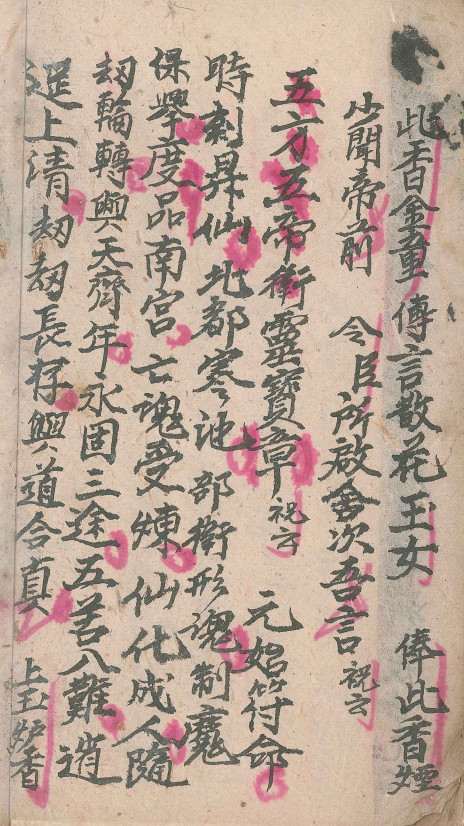 此香金童傳言散花玉女 俸此香煙
少聞帝前 令臣所啟會次吾言 祝云
五方五帝衛靈寶章 祝云 元始符命
時刻昇仙北都寒池部衛形魂制魔
保舉度品南宮亡魂受煉仙化成人隨
劫輪轉與天齊年永固三途五苦八難逍
遥上清劫劫長存與道合真 上玉炉香